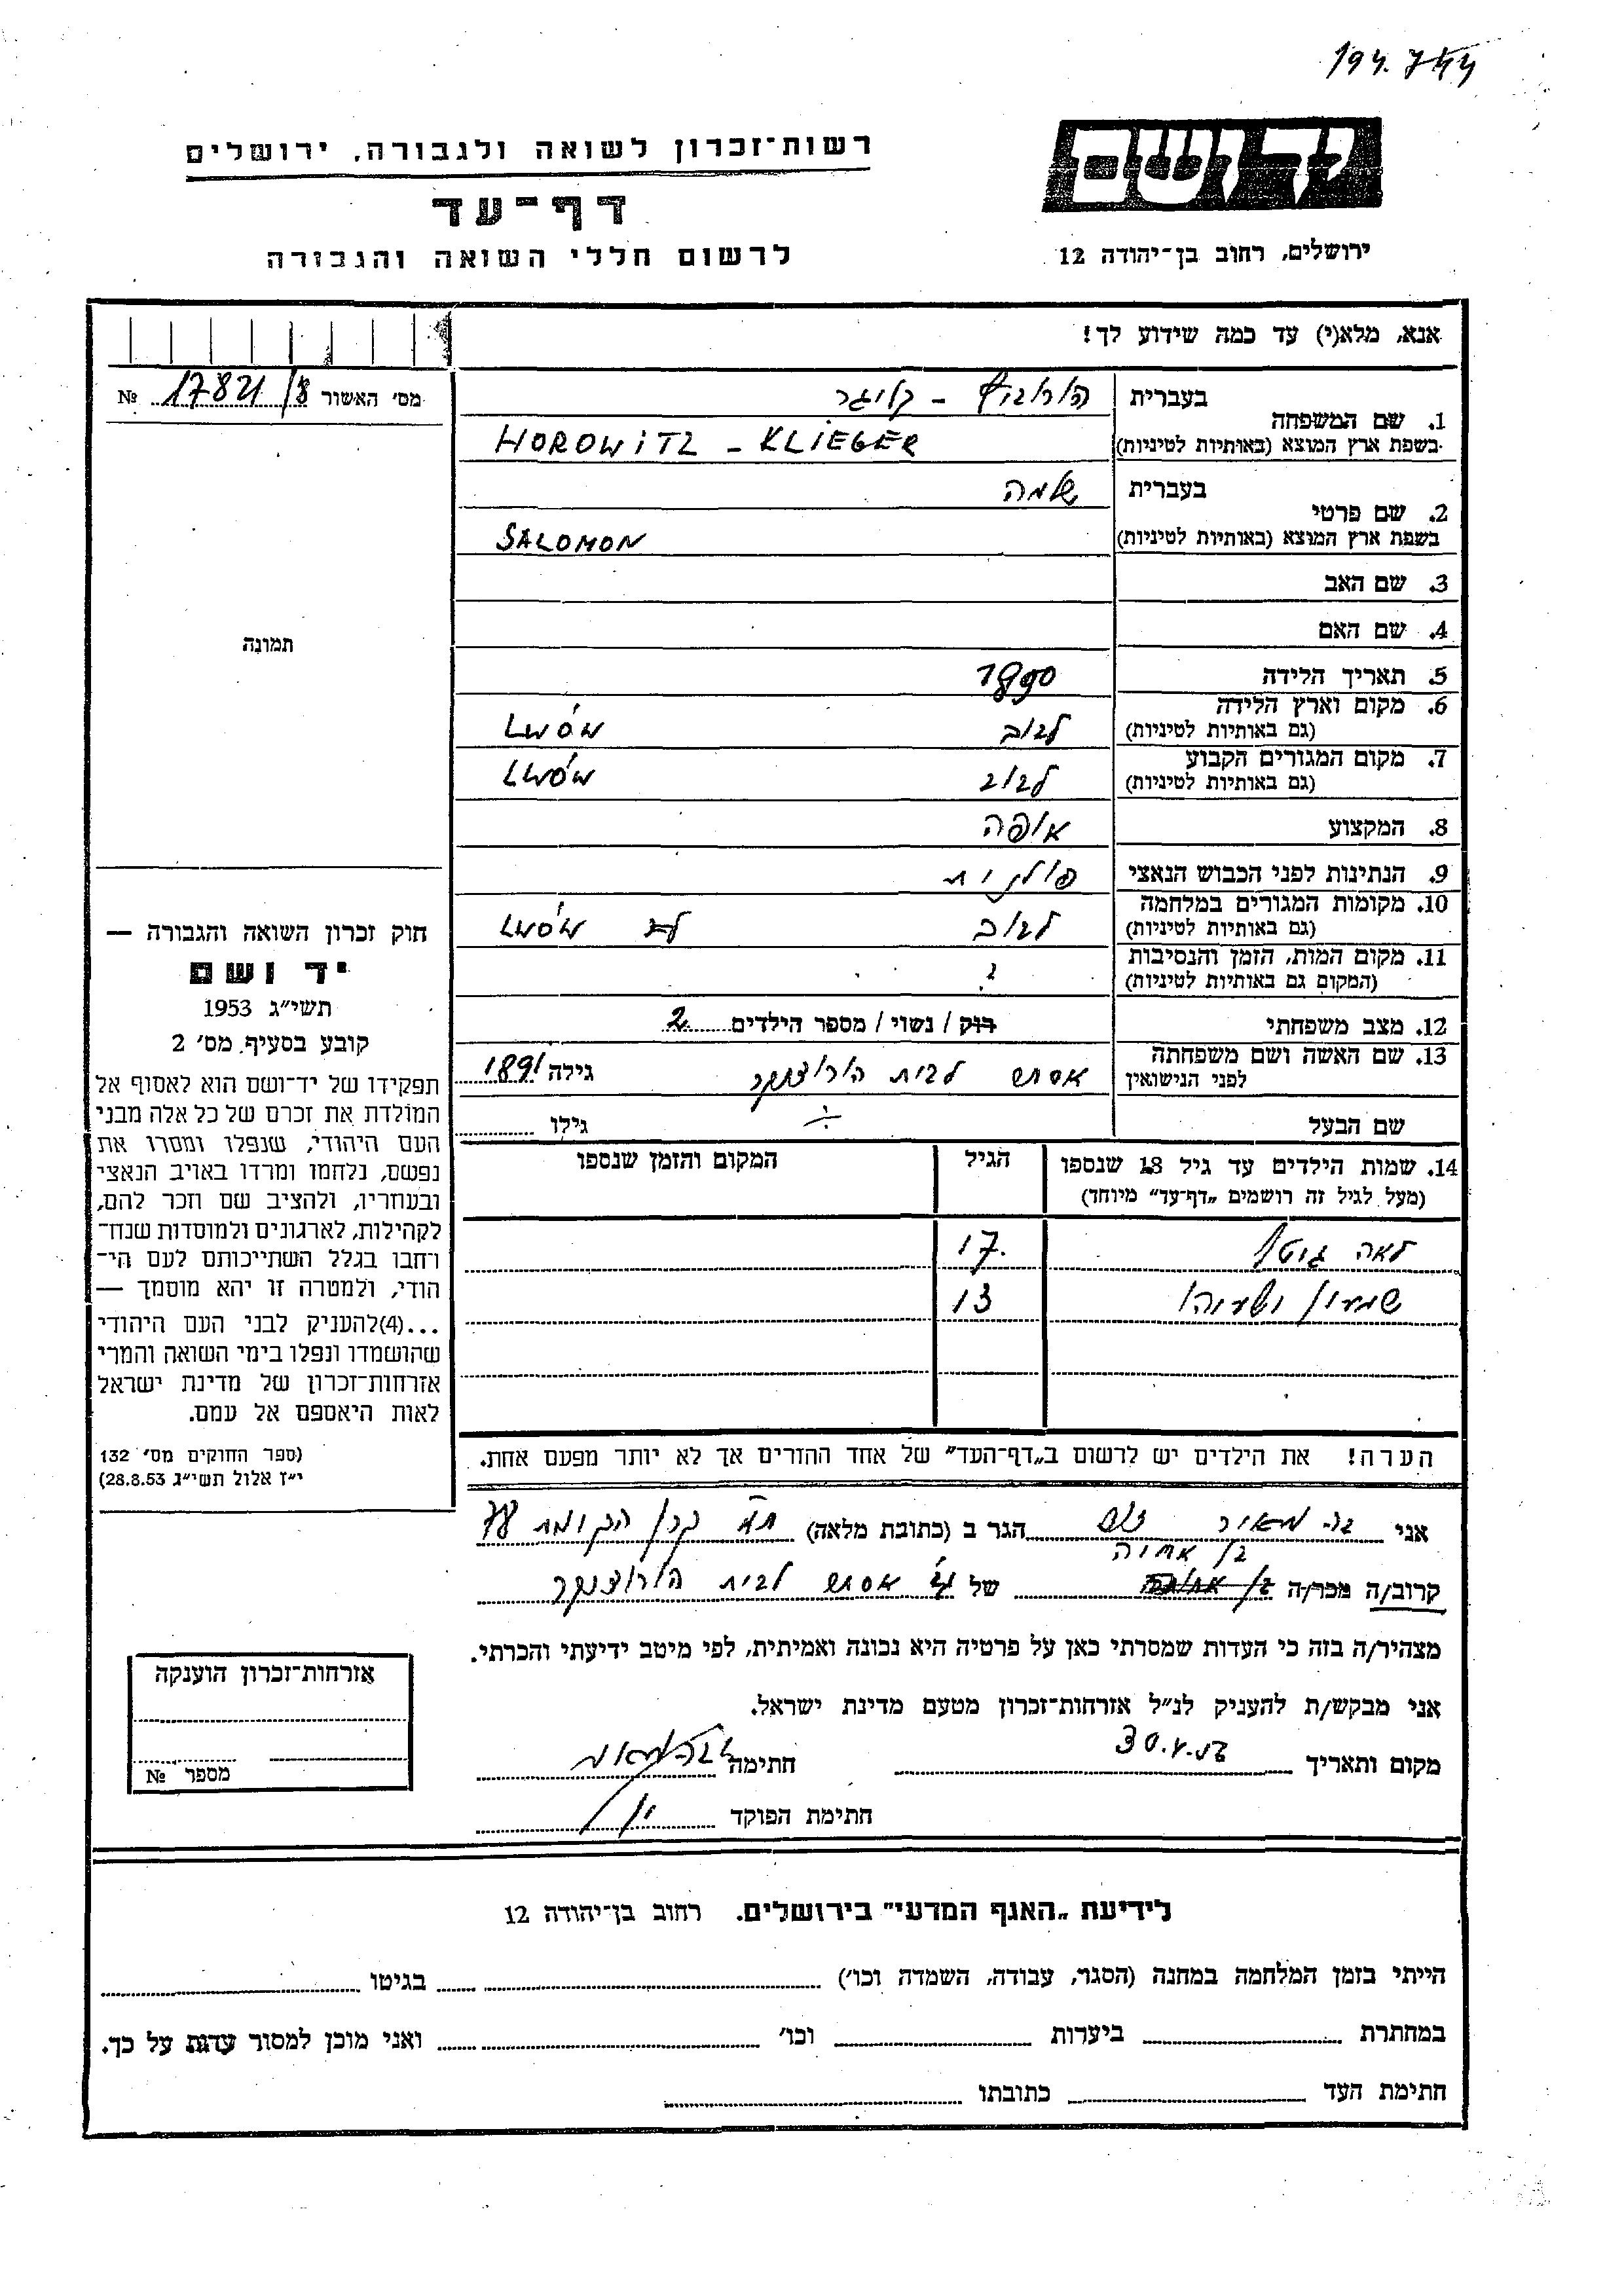 194.744
רשות־זכרון לשואה ולגבורה, ירושלים
דף־עד
לרשום חללי השואה והגבורה
ידושם
ירושלים, רחוב בן־יהודה 12
אנא, מלא(י) עד כמה שידוע לך!
מס׳ האשור 17821/8 №
תמונה
חוק זכרון השואה והגבורה —
יד ושם
תשי״ג 1953
קובע בסעיף מס׳ 2
תפקידו של יד־ושם הוא לאסוף אל
המולדת את זכרם של כל אלה מבני
העם היהודי, שנפלו ומסרו את
נפשם, נלחמו ומרדו באויב הנאצי
ובעוזריו, ולהציב שם וזכר להם,
לקהילות, לארגונים ולמוסדות שנח־
רחבו בגלל השתייכותם לעם הי־
הודי, ולמטרה זו יהא מוסמך —
...(4)להעניק לבני העם היהודי
שהושמדו ונפלו בימי השואה והמרי
אזרחות־זכרון של מדינת ישראל
לאות היאספם אל עמם.
(ספר החוקים מס׳ 132
י״ז אלול תשי״ג 28.8.53)
1. שם המשפחה בעברית הורוביץ - קליגר
בשפת ארץ המוצא (באותיות לטיניות) HOROWITZ - KLIEGER
2. שם פרטי בעברית שלמה
בשפת ארץ המוצא (באותיות לטיניות) SALOMON
3. שם האב
4. שם האם
5. תאריך הלידה 1890
6. מקום וארץ הלידה (גם באותיות לטיניות) לבוב LWÓW
7. מקום המגורים הקבוע (גם באותיות לטיניות) לבוב LWÓW
8. המקצוע אופה
9. הנתינות לפני הכבוש הנאצי פולנית
10. מקומות המגורים במלחמה (גם באותיות לטיניות) לבוב LWÓW
11. מקום המות, הזמן והנסיבות (המקום גם באותיות לטיניות) ?
12. מצב משפחתי רווק / נשוי / מספר הילדים 2
13. שם האשה ושם משפחתה לפני הנישואין אסתר לבית גילה 1891
שם הבעל גילו
14. שמות הילדים עד גיל 18 שנספו הגיל המקום והזמן שנספו
(מעל לגיל זה רושמים „דף־עד״ מיוחד)
לאה גיטל 17
שמעון 13
הערה! את הילדים יש לרשום ב„דף־העד״ של אחד ההורים אך לא יותר מפעם אחת.
אני הגר ב (כתובת מלאה) קרן הקימת
בן אחיה
קרוב/ה מכר/ה של אסתר לבית
מצהיר/ה בזה כי העדות שמסרתי כאן על פרטיה היא נכונה ואמיתית, לפי מיטב ידיעתי והכרתי.
אני מבקש/ת להעניק לנ״ל אזרחות־זכרון מטעם מדינת ישראל.
מקום ותאריך חתימה
חתימת הפוקד
אזרחות־זכרון הוענקה
מספר №
לידיעת „האגף המדעי״ בירושלים. רחוב בן־יהודה 12
הייתי בזמן המלחמה במחנה (הסגר, עבודה, השמדה וכו׳) בגיטו
במחתרת ביערות וכו׳ ואני מוכן למסור עדות על כך.
חתימת העד כתובתו